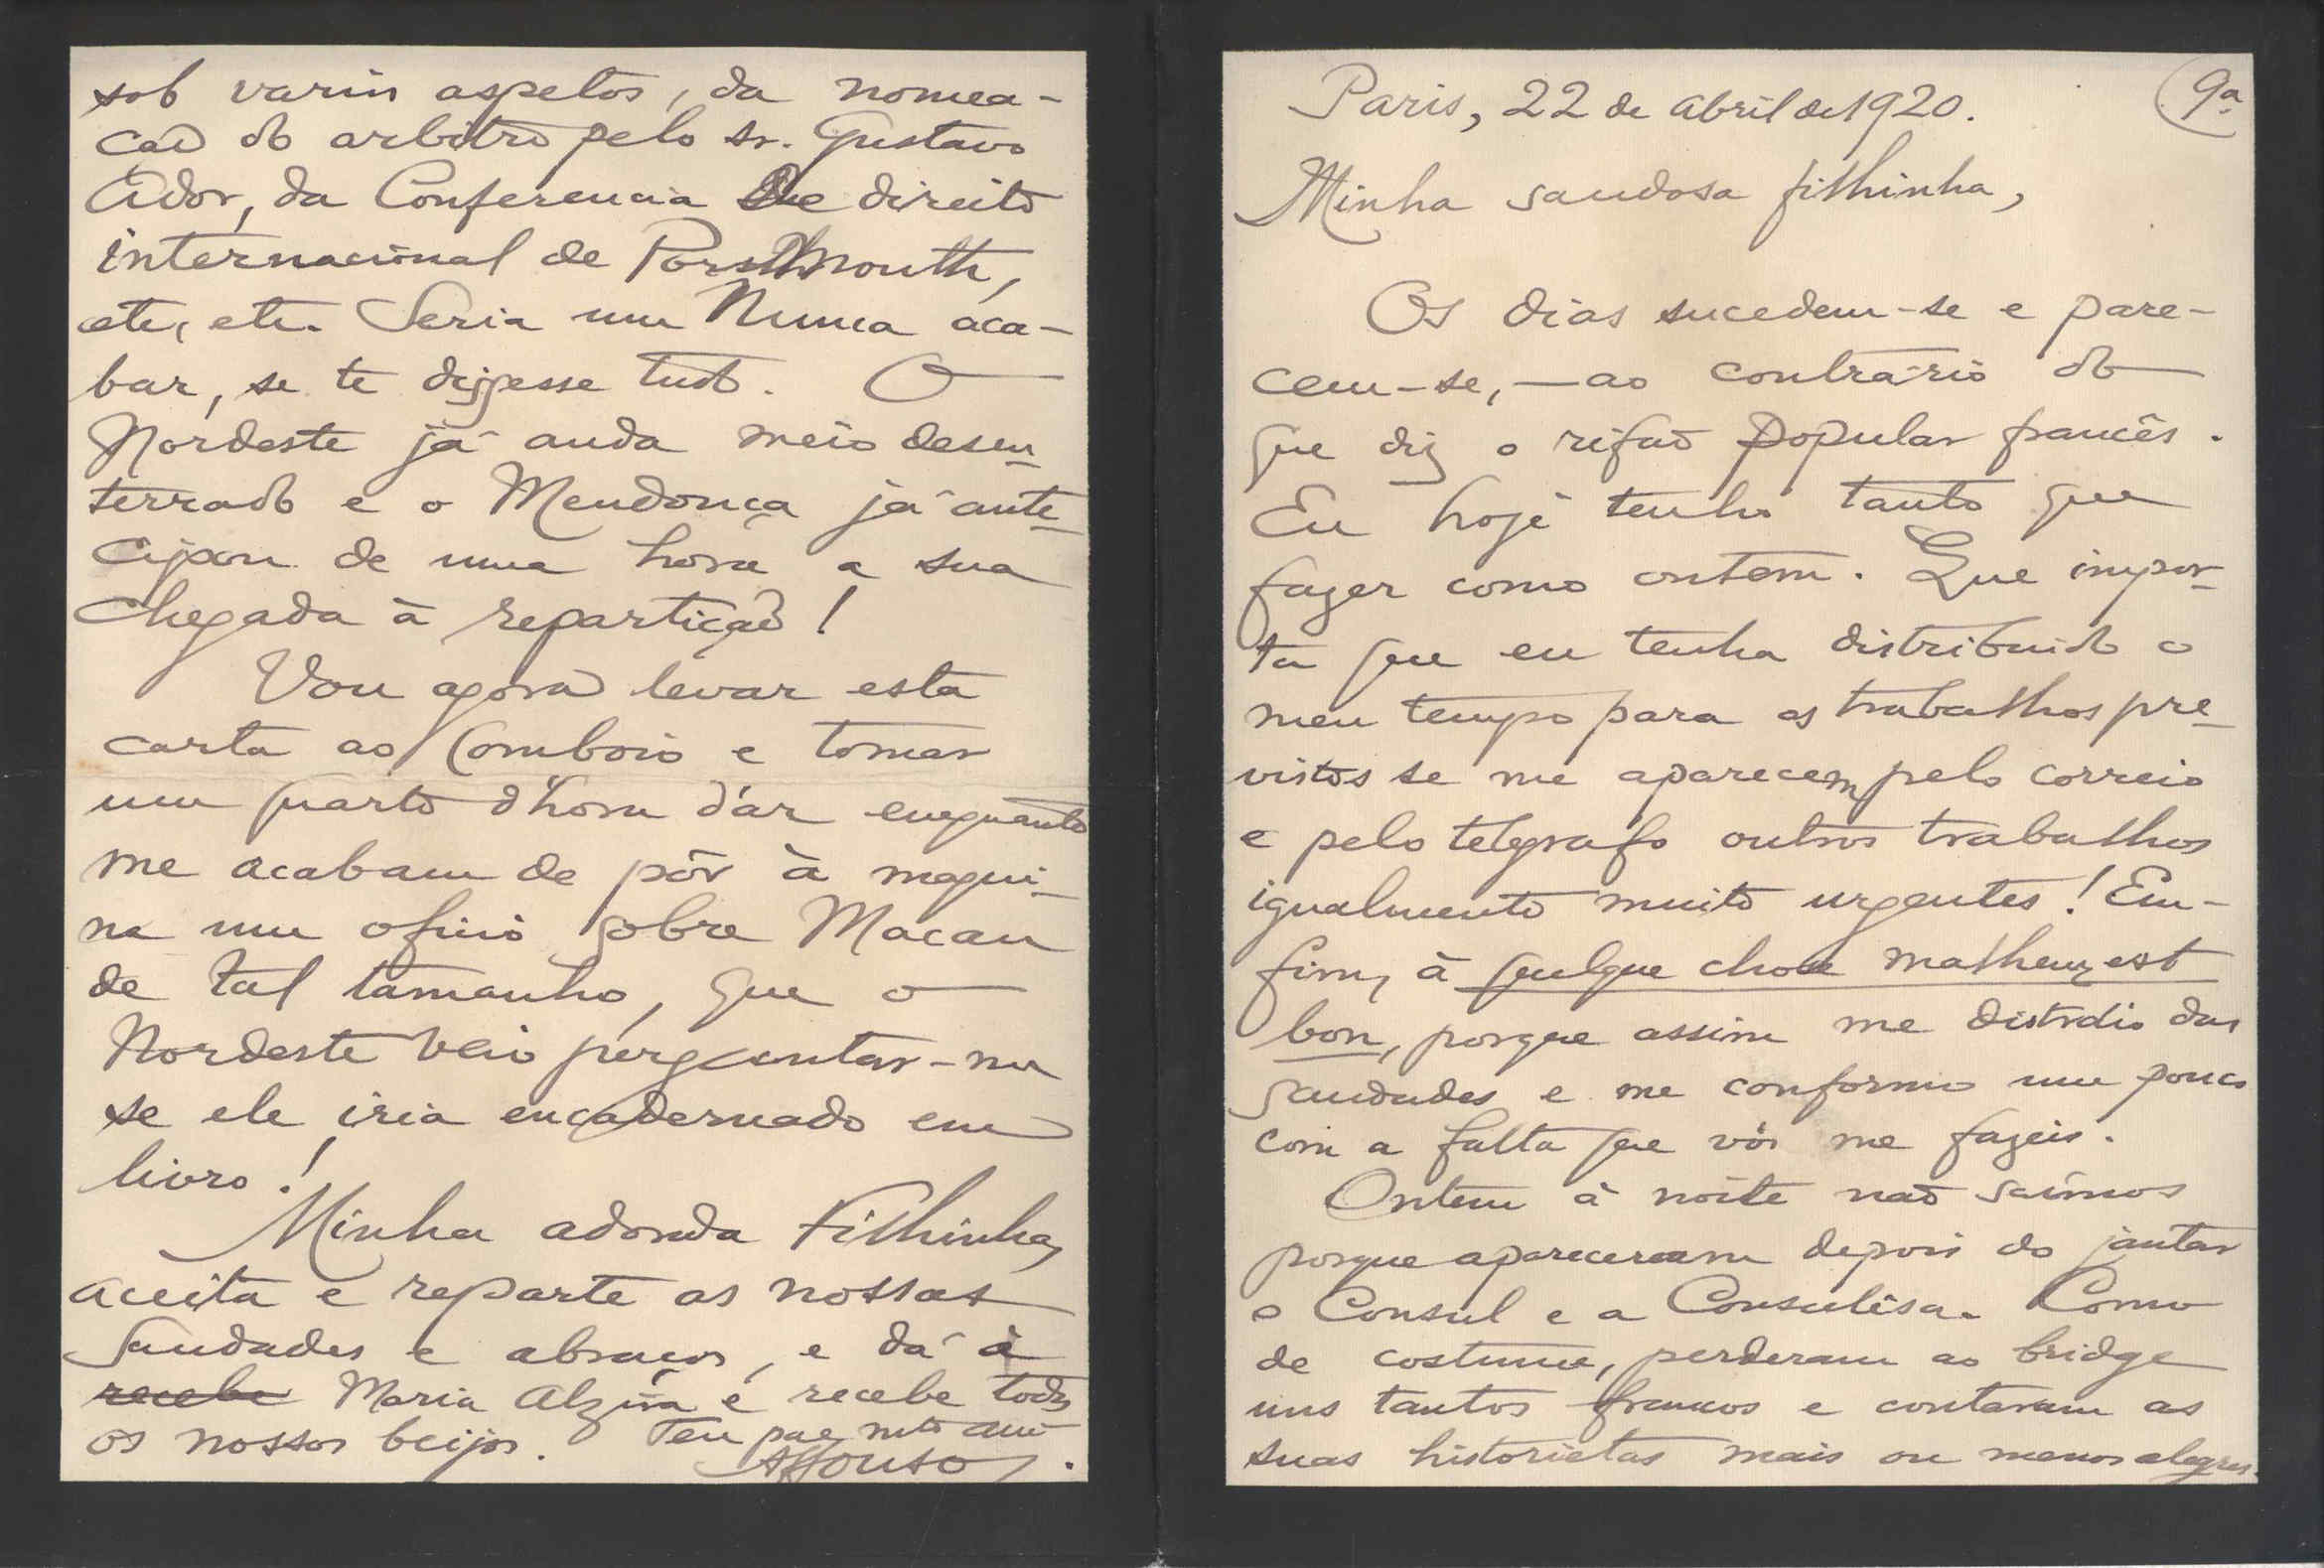 sob varios aspetos, da nomea-
ção do arbitro pelo sr. Gustavo
Ador, da Conferencia de direito
internacional de Porsthmouth,
etc, etc. Seria um nunca aca-
bar, se te dissesse tudo. O
Nordeste já anda meio desen-
terrado e o Mendonça já ante-
cipou de uma hora a sua
chegada à repartição!
Vou agora levar esta
carta ao Comboio e tomar
um quarto d'hora d'ar enquanto
me acabam de pôr à maqui-
na um oficio sobre Macau
de tal tamanho, que o
Nordeste veio perguntar-me
se ele iria encadernado em
livro!
Minha adorada Filhinha,
aceita e reparte as nossas
saudades e abraços, e dá à
recebe Maria Alzira e recebe todos
os nossos beijos. Teu pae mto amº
Affonso.
9ª
Paris, 22 de abril de 1920.
Minha saudosa filhinha,
Os dias sucedem-se e pare-
cem-se, — ao contrário do
que diz o rifão popular francês.
Eu hoje tenho tanto que
fazer como ontem. Que impor-
ta que eu tenha distribuido o
meu tempo para os trabalhos pre-
vistos se me aparecem pelo correio
e pelo telegrafo outros trabalhos
igualmente muito urgentes! Em-
fim, à quelque chose malheur est
bon, porque assim me distráio das
saudades e me conformo um pouco
com a falta que vós me fazeis.
Ontem à noite não saímos
porque apareceram depois do jantar
o Consul e a Consulêsa. Como
de costume, perderam ao bridge
uns tantos francos e contaram as
suas historietas mais ou menos alegres.